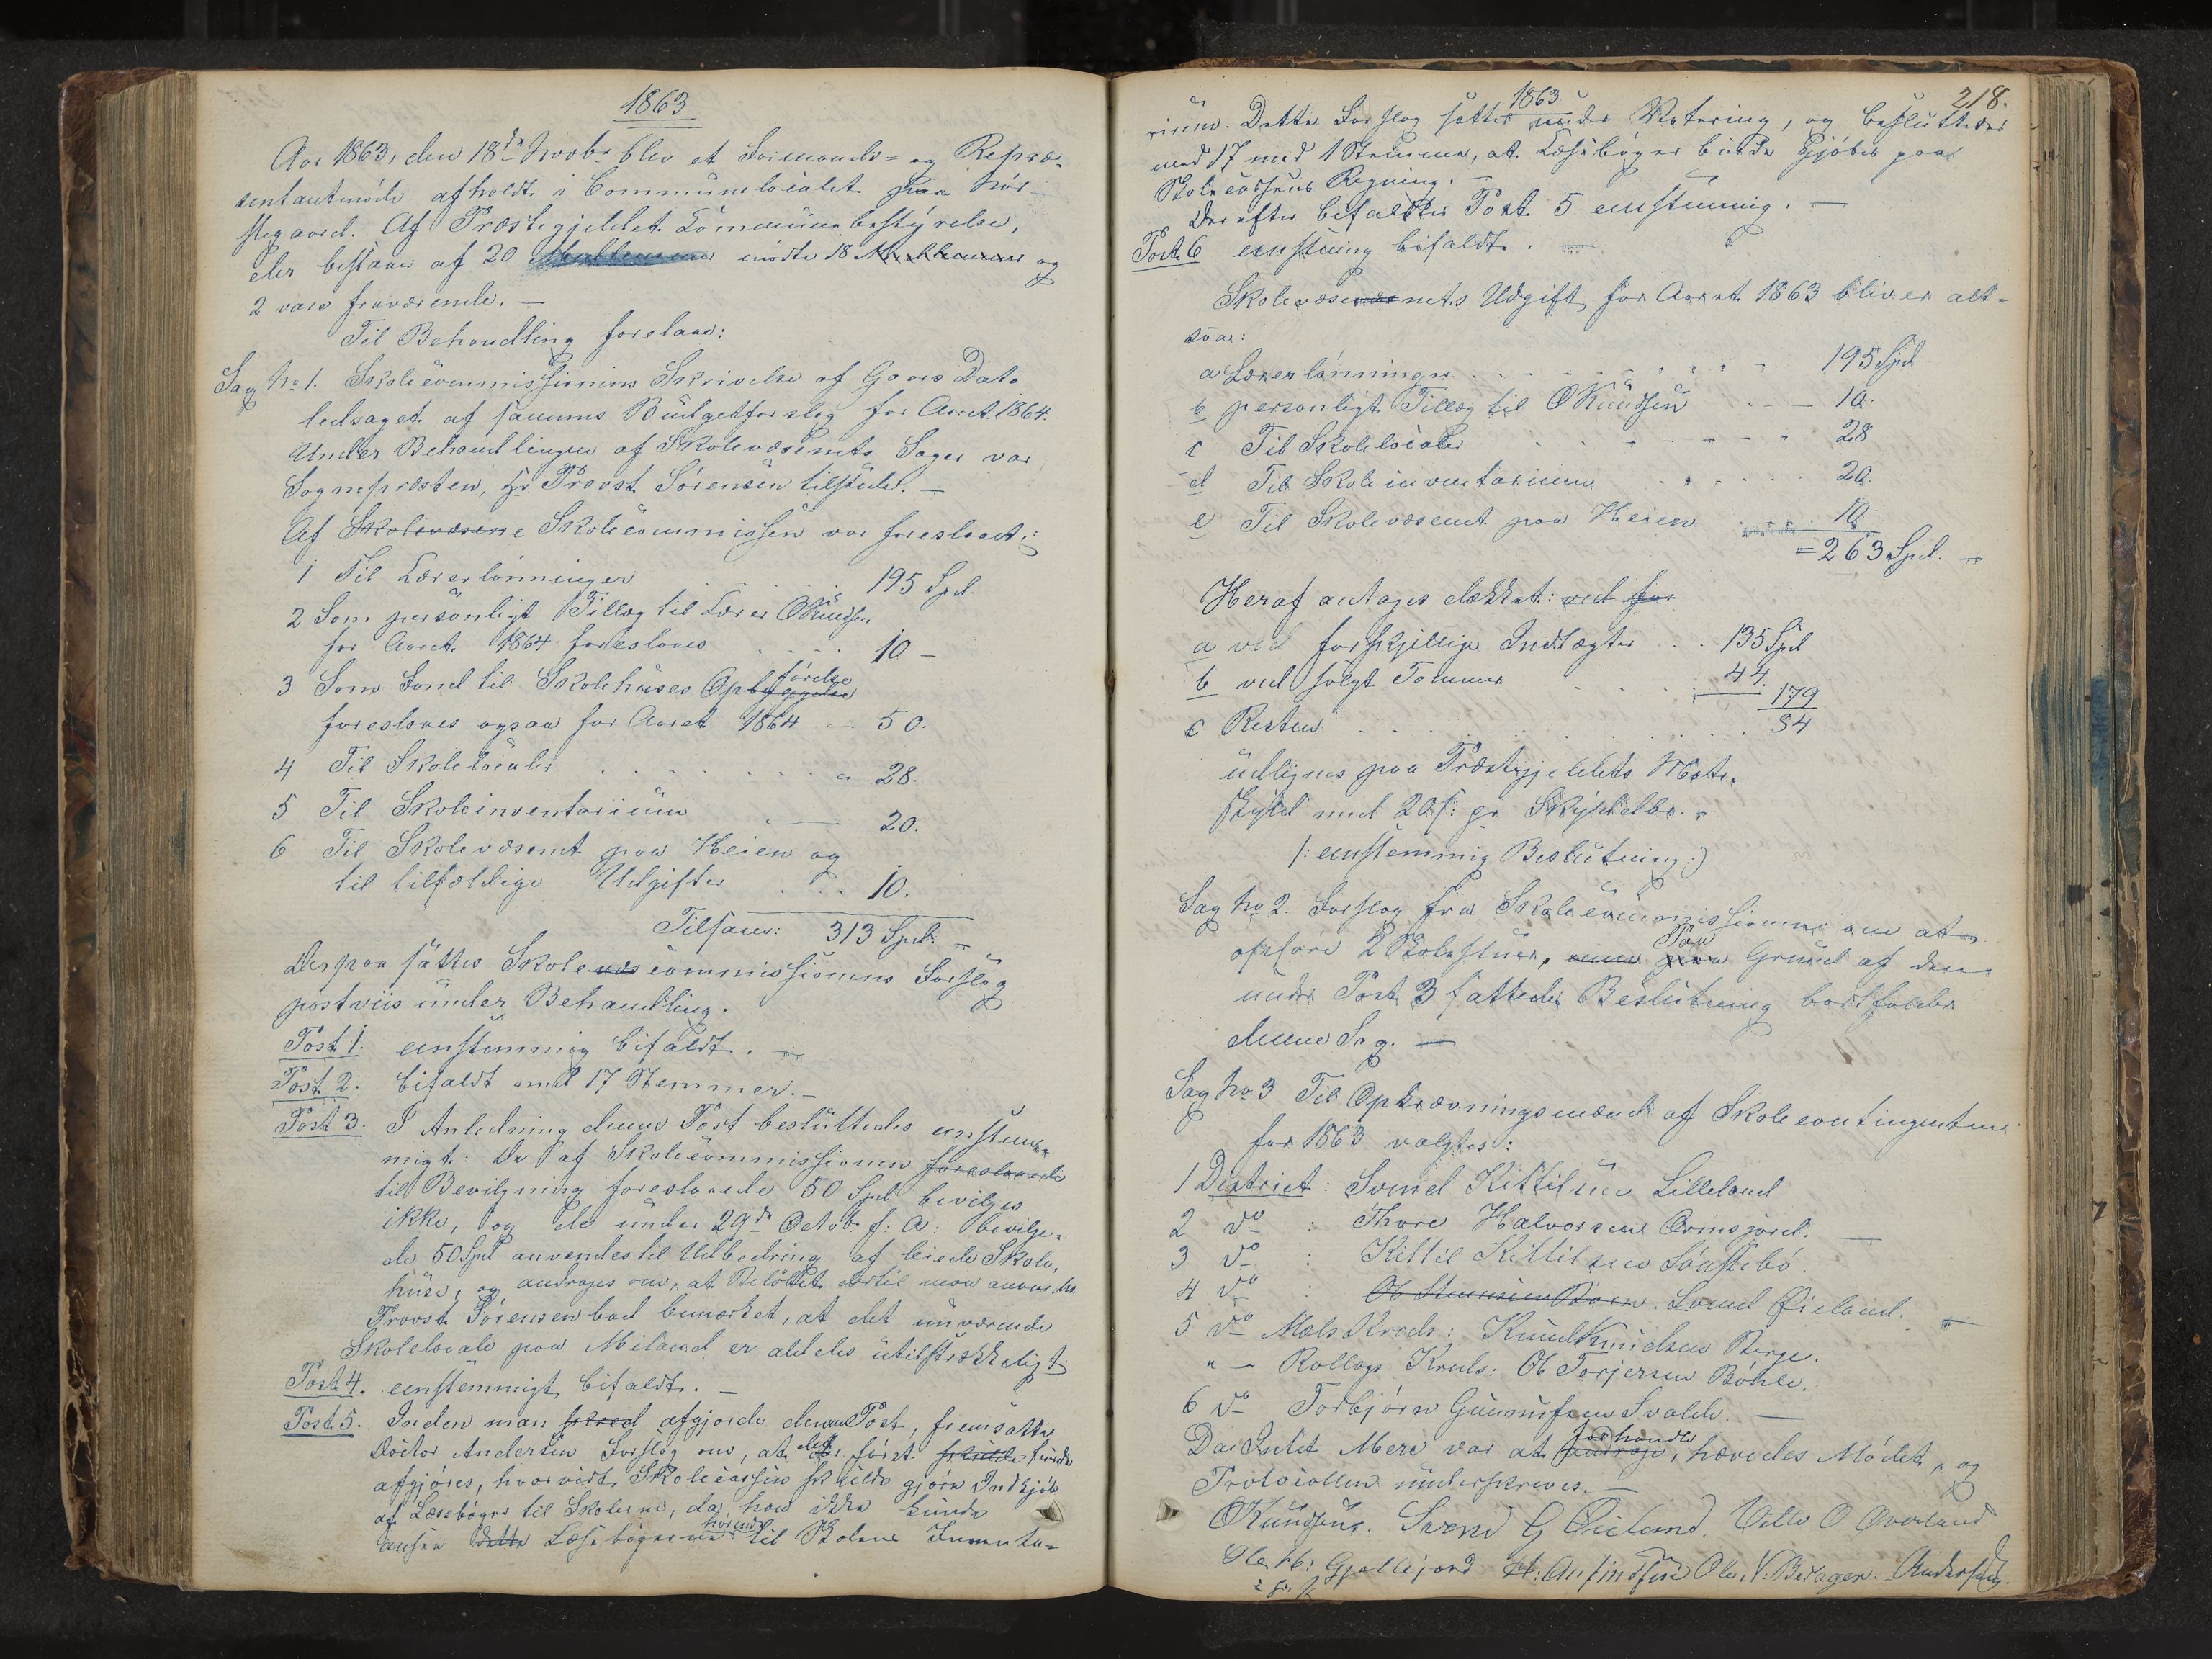 1863
Aar 1863, den 18de Novbr blev et Formands- og Repræ-
sentantmöde afholdt i Communelocalet paa Nör-
stegaard. Af Præstegjeldet Communebestyrelse,
der bestaaer af 20 Medlemmer mödte 18 Medlemmer og
2 vare fraværende. —
Til Behandling forelaae:
Sag No 1. Skolecommissionens Skrivelse af Gaars Dato
ledsaget af sammes Budgetforslag for Aaret 1864.
Under Behandlingen af Skolevæsenets Sager var
Sognepræsten, Hr Provst Sörensen tilstede. —
Af Skolevæsene Skolecommissen var foreslaaet:
1 Til Lærerlönninger . . . . 195 Spd.
2 Som personligt Tillæg til Lærer OKnudsen
for Aaret 1864 foreslaaes . . . . 10 —
3 Som Fond til Skolehuses Opbyggelse förelse
foreslaaes ogsaa for Aaret 1864 — 50.
4 Til Skolelocaler . . . . . . " 28.
5 Til Skoleinventarium — 20.
6 Til Skolevæsenet paa Heien og
til tilfældige Udgifter . . . . 10.
Tilsam: 313 Spd. —
Derpaa sattes Skolevæs commissionens Forslag
postviis under Behandling.
Post 1. eenstemmig bifaldt. —
Post 2. bifaldt med 17 Stemmer. —
Post 3. I Anledning denne Post besluttedes eenstem-
migt: De af Skolecommissionen foreslaaede
til Bevilgning foreslaaede 50 Spd bevilges
ikke, og de under 29de Octobr f: A: bevilge-
de 50 Spd anvendes til Udbedring af leiede Skole-
huse, og andrages om, at Belöbet dertil maa anvendes.
Provst Sörensen bad bemærket, at det nuværende
Skolelocale paa Miland er aldeles utilstrækkeligt.
Post 4. eenstemmigt bifaldt. —
Post 5. Inden man skred afgjorde denne Post, fremsatte
Doctor Andersen Forslag om, at det der först skulde burde
afgjöres, hvorvidt Skolecassen skulde gjöre Indkjöb
af Læseböger til Skolerne, da han ikke kunde
ansee dette Læsebögerne hörende til Skolens Inventa-
1863
218.
rium. Dette Forslag sattes under Votering, og besluttedes
med 17 mod 1 Stemme, at Læseböger burde Kjöbes paa
Skolecassens Regning. —
Derefter bifaldtes Post 5 eenstemmig. —
Post 6 eenstemmig bifaldt. —
Skolevæse nets Udgift for Aaret 1863 bliver alt-
saa:
a Lærerlönninger . . . . . . 195 Spd
b personligt Tillæg til OKnudsen . — 10.
c Til Skolelocaler . . . . . . 28
d Til Skoleinventarium . . . . . 20.
e Til Skolevæsenet paa Heien . . . . 10.
= 263 Spd. —
Heraf antages dækket: ved for
a ved forskjellige Indtægter . . 135 Spd
b ved solgt Tömmer . . . . 44.
179
c Resten . . . . . . . . 84
udlignes paa Præstegjeldets Matr.
skyld med 20 s: pr Skylddlr. "
(: eenstemmig Beslutning :)
Sag No 2. Forslag fra Skolecommissionen om at
opföre 2 Skolestuer, Paa Grund af den
under Post 3 fattede Beslutning bortfalder
denne Sag. —
Sag No 3 Til Opkrævningsmænd af Skolecontingenten
for 1863 valgtes:
1 District: Svend Kittilsen Lilleland
2 do : Thore Halvorsen Ormsjord. —
3 do : Kittil Kittilsen Lönstebö.
4 do : Svend Öieland. —
5 do Mæls Kreds: Knud Knudsen Berge.
" — Rollags Kreds: Ol Torjersen Böhle.
6 do Torbjörn Gunnufsen Svadde. —
Da Intet Mere var at forhandle, hævedes Mödet, og
Protocollen underskreves. —
OKnudsen. Svend G Öieland Vetle O Överland
Ole Hs: Gjellejord H: Anfindsen Ole N: Berager. Andersen.